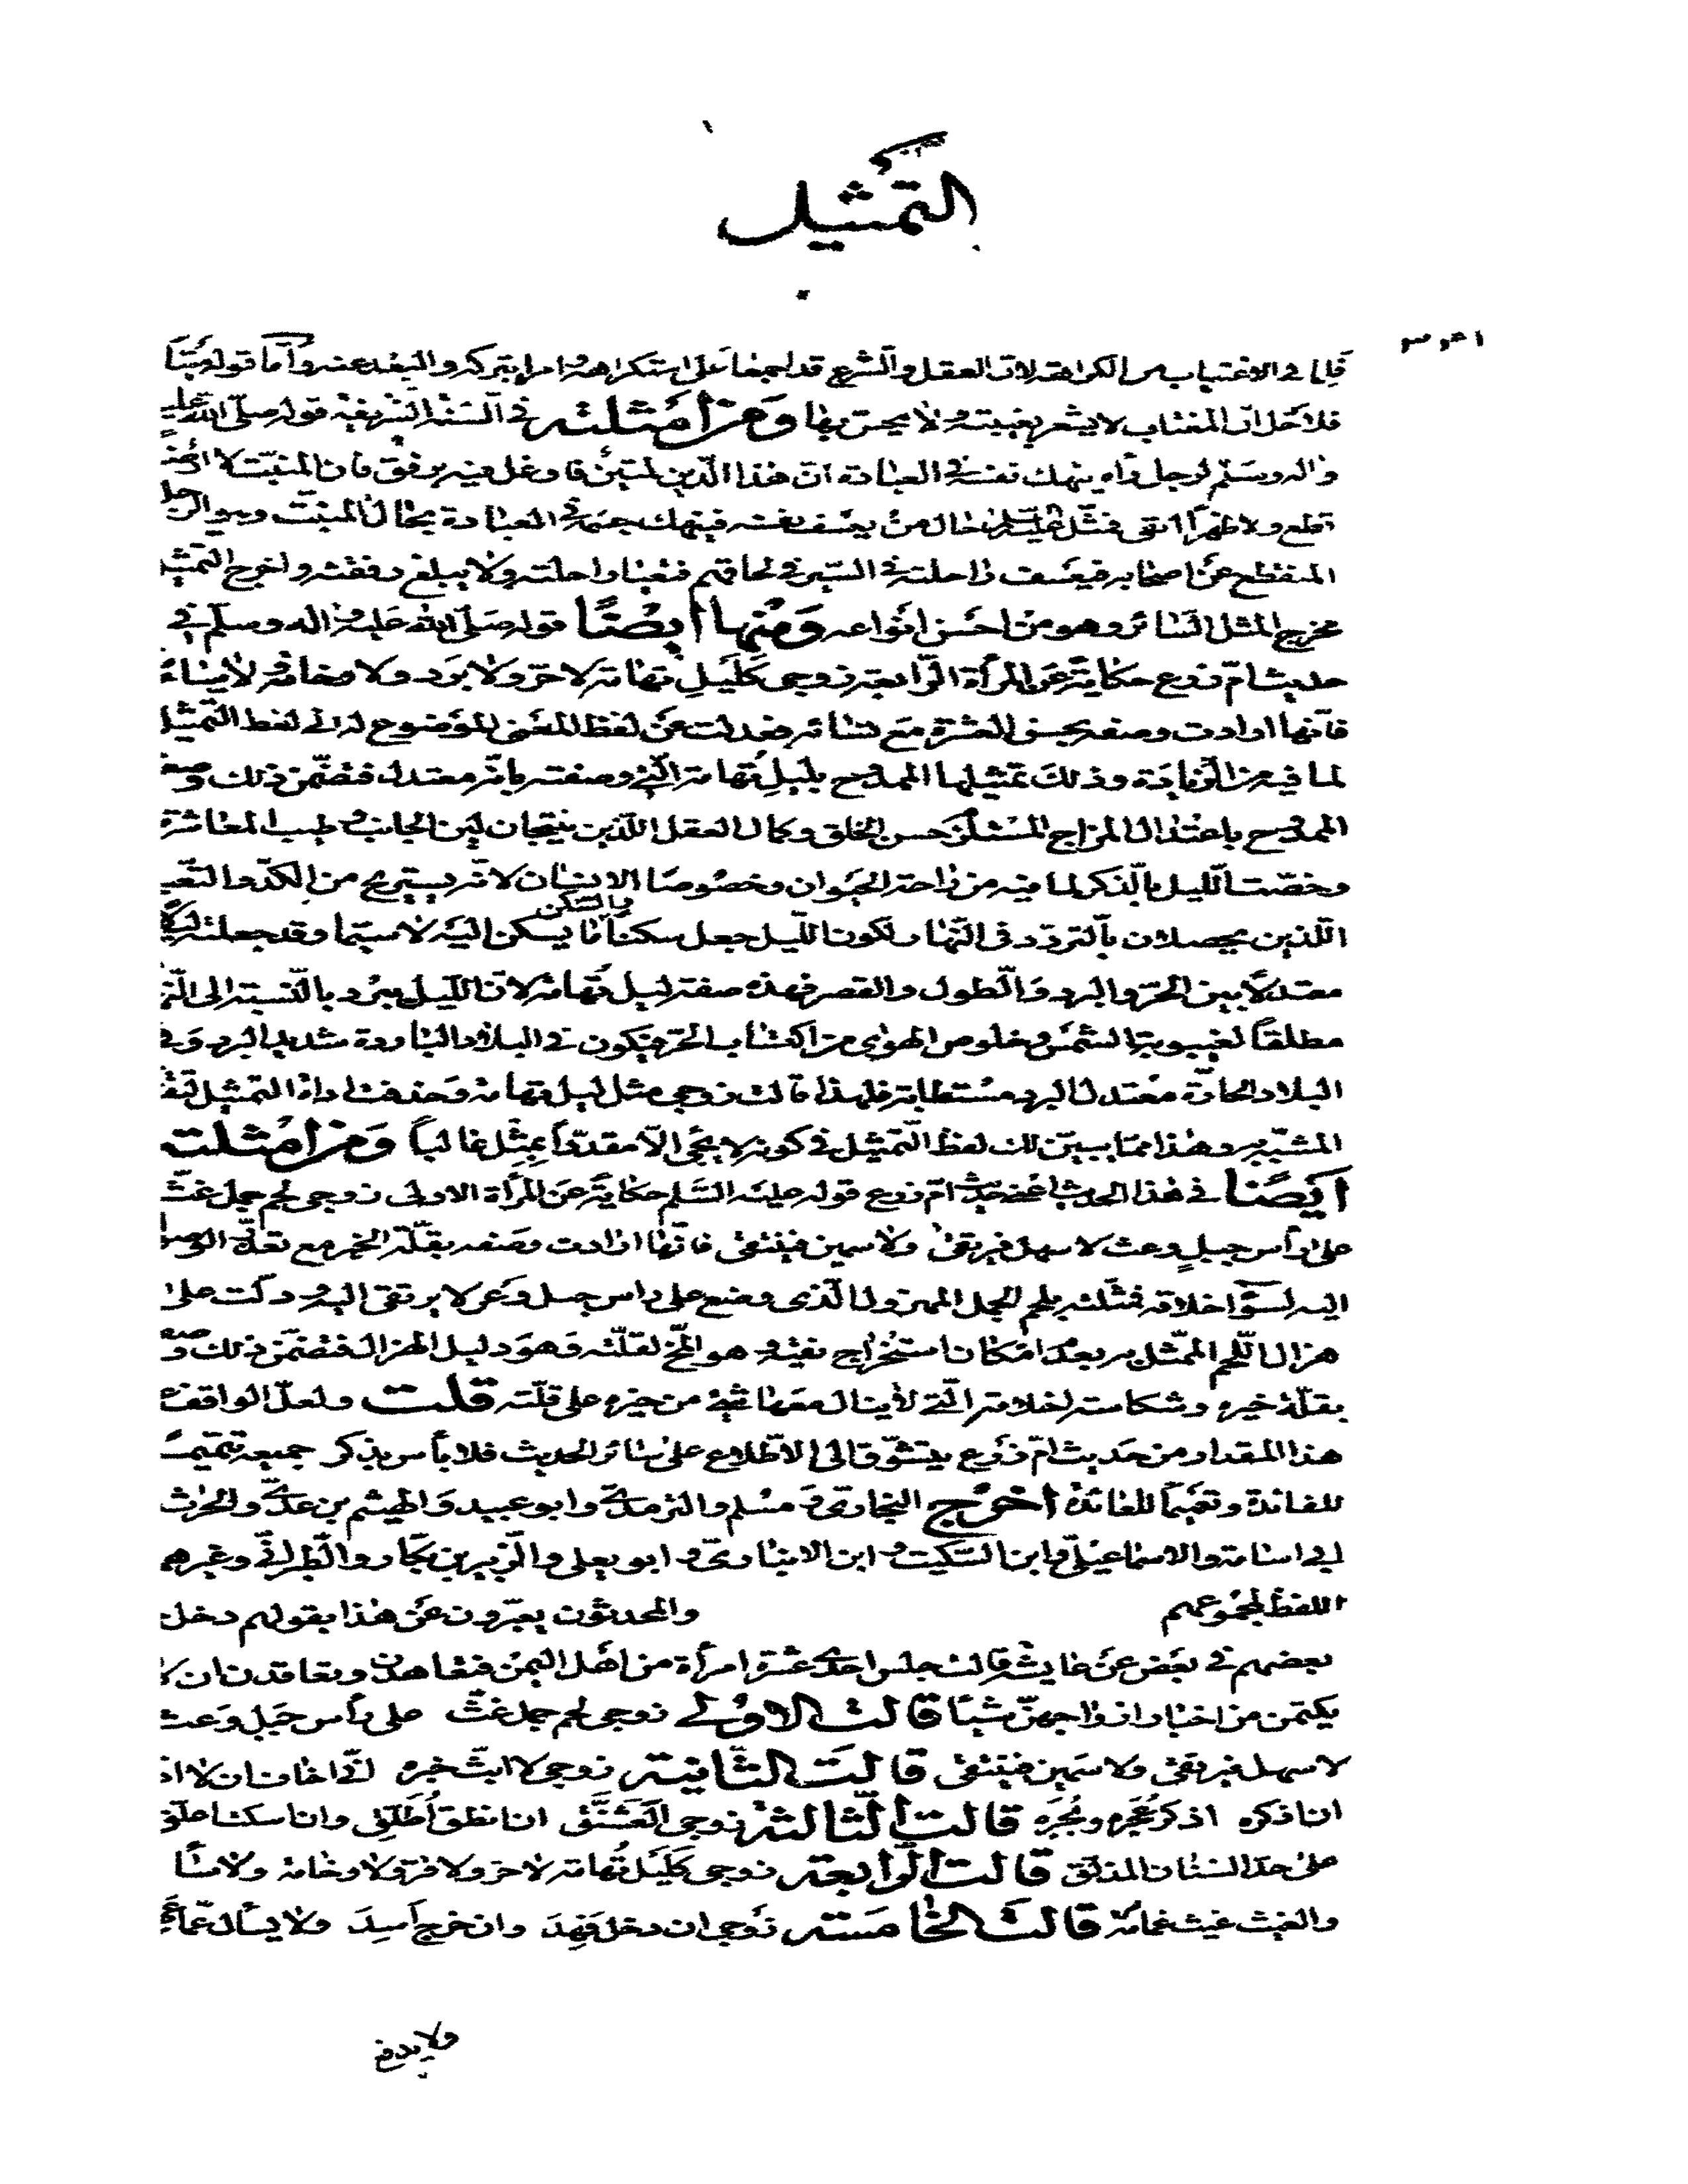 التمثيل
فلما في الاغتياب من الكراهة لان العقل والشرع قد اجمعا على استكراهه وامرا بتركه والبعد عنه واما قوله ميتا
فلاجل ان المغتاب لا يشعر بغيبته ولا يحس بها ومن امثلته في السنة الشريفة قوله صلى الله عليه
واله وسلم لرجل رآه ينهك نفسه في العبادة ان هذا الدين لمتين فاوغل فيه برفق فان المنبت لا ارضا
قطع ولا ظهرا ابقى فمثل عليه السلم حال من يعسف نفسه فينهك جسمه في العبادة بحال المنبت وهو الرجل
المنقطع عن اصحابه فيعسف راحلته في السير في لحاقهم فتعيا راحلته ولا يبلغ رفقته واخرج التمثيل
مخرج المثل السائر وهو من احسن انواعه ومنها ايضا قوله صلى الله عليه واله وسلم في
حديث ام زرع حكاية عن المرأة الرابعة زوجي كليل تهامة لا حر ولا برد ولا مخافة ولا سأمة
فانها ارادت وصفه بحسن العشرة مع نسائه فعدلت عن لفظ المعنى الموضوع له الى لفظ التمثيل
لما فيه من الزيادة وذلك تمثيلها الممدوح بليل تهامة التي وصفته بانه معتدل فتضمن ذلك وصف
الممدوح باعتدال المزاج المستلزم حسن الخلق وكمال العقل اللذين ينتجان لين الجانب وطيب المعاشرة
وخصت الليل بالذكر لما فيه من راحة الحيوان وخصوصا الانسان لانه يستريح من الكد والتعب
اللذين يحصلان بالتردد في النهار ولكون الليل جعل سكنا ما يسكن اليه بالسكن لا سيما وقد جعلته ليلا
معتدلا بين الحر والبرد والطول والقصر فهذه صفة ليل تهامة لان الليل يبرد بالنسبة الى النهار
مطلقا لغيبوبة الشمس وخلوص الهواء من اكتساب الحر فيكون في البلاد الباردة شديد البرد وفي
البلاد الحارة معتدل البرد مستطابة فلهذا قالت زوجي مثل ليل تهامة وحذفت اداة التمثيل
المشبه به وهذا مما يبين لك لفظ التمثيل في كونه لا يجيء الا مقدرا بمثل غالبا ومن امثلته
ايضا في هذا الحديث اعني حديث ام زرع قوله عليه السلم حكاية عن المرأة الاولى زوجي لحم جمل غث
على رأس جبل وعث لا سهل فيرتقى ولا سمين فينتقى فانها ارادت وصفه بقلة الخير مع تعذر الوصول
اليه لسوء اخلاقه فمثلته بلحم الجمل المهزول الذي وضع على راس جبل وعر لا يرتقى اليه ودلت على
هزال اللحم الممثل به بعدم امكان استخراج نقيه وهو المخ لقلته وهو دليل الهزال فتضمن ذلك وصفه
بقلة خيره وشكاسته اخلاقه التي لا ينال معها شيء من خيره على قلته قلت ولعل الواقف
هذا المقدار من حديث ام زرع يتشوق الى الاطلاع على سائر الحديث فلا بأس بذكر جميعه تتميما
للفائدة وتعميما للعائدة اخرج البخاري ومسلم والترمذي وابو عبيد والهيثم بن عدي والحرث
ابي اسامة والاسماعيلي وابن السكيت وابن الانباري وابو يعلى والزبير بن بكار والطبراني وغيرهم
اللفظ لمجموعهم والمحدثون يعبرون عن هذا بقولهم دخل
بعضهم في بعض عن عايشة قالت جلس احدى عشرة امرأة من اهل اليمن فتعاهدن وتعاقدن ان لا
يكتمن من اخبار ازواجهن شيئا قالت الاولى زوجي لحم جمل غث على رأس جبل وعث
لا سهل فيرتقى ولا سمين فينتقى قالت الثانية زوجي لا ابث خبره اني اخاف ان لا اذ
ان اذكره اذكر عجره وبجره قالت الثالثة زوجي العشنق ان انطق اطلق وان اسكت اعلق
على حد السنان المذلق قالت الرابعة زوجي كليل تهامة لا حر ولا قر ولا وخامة ولا سأ
والغيث غيث غمامة قالت الخامسة زوجي ان دخل فهد وان خرج اسد ولا يسأل عما عهد
ولا يرفع